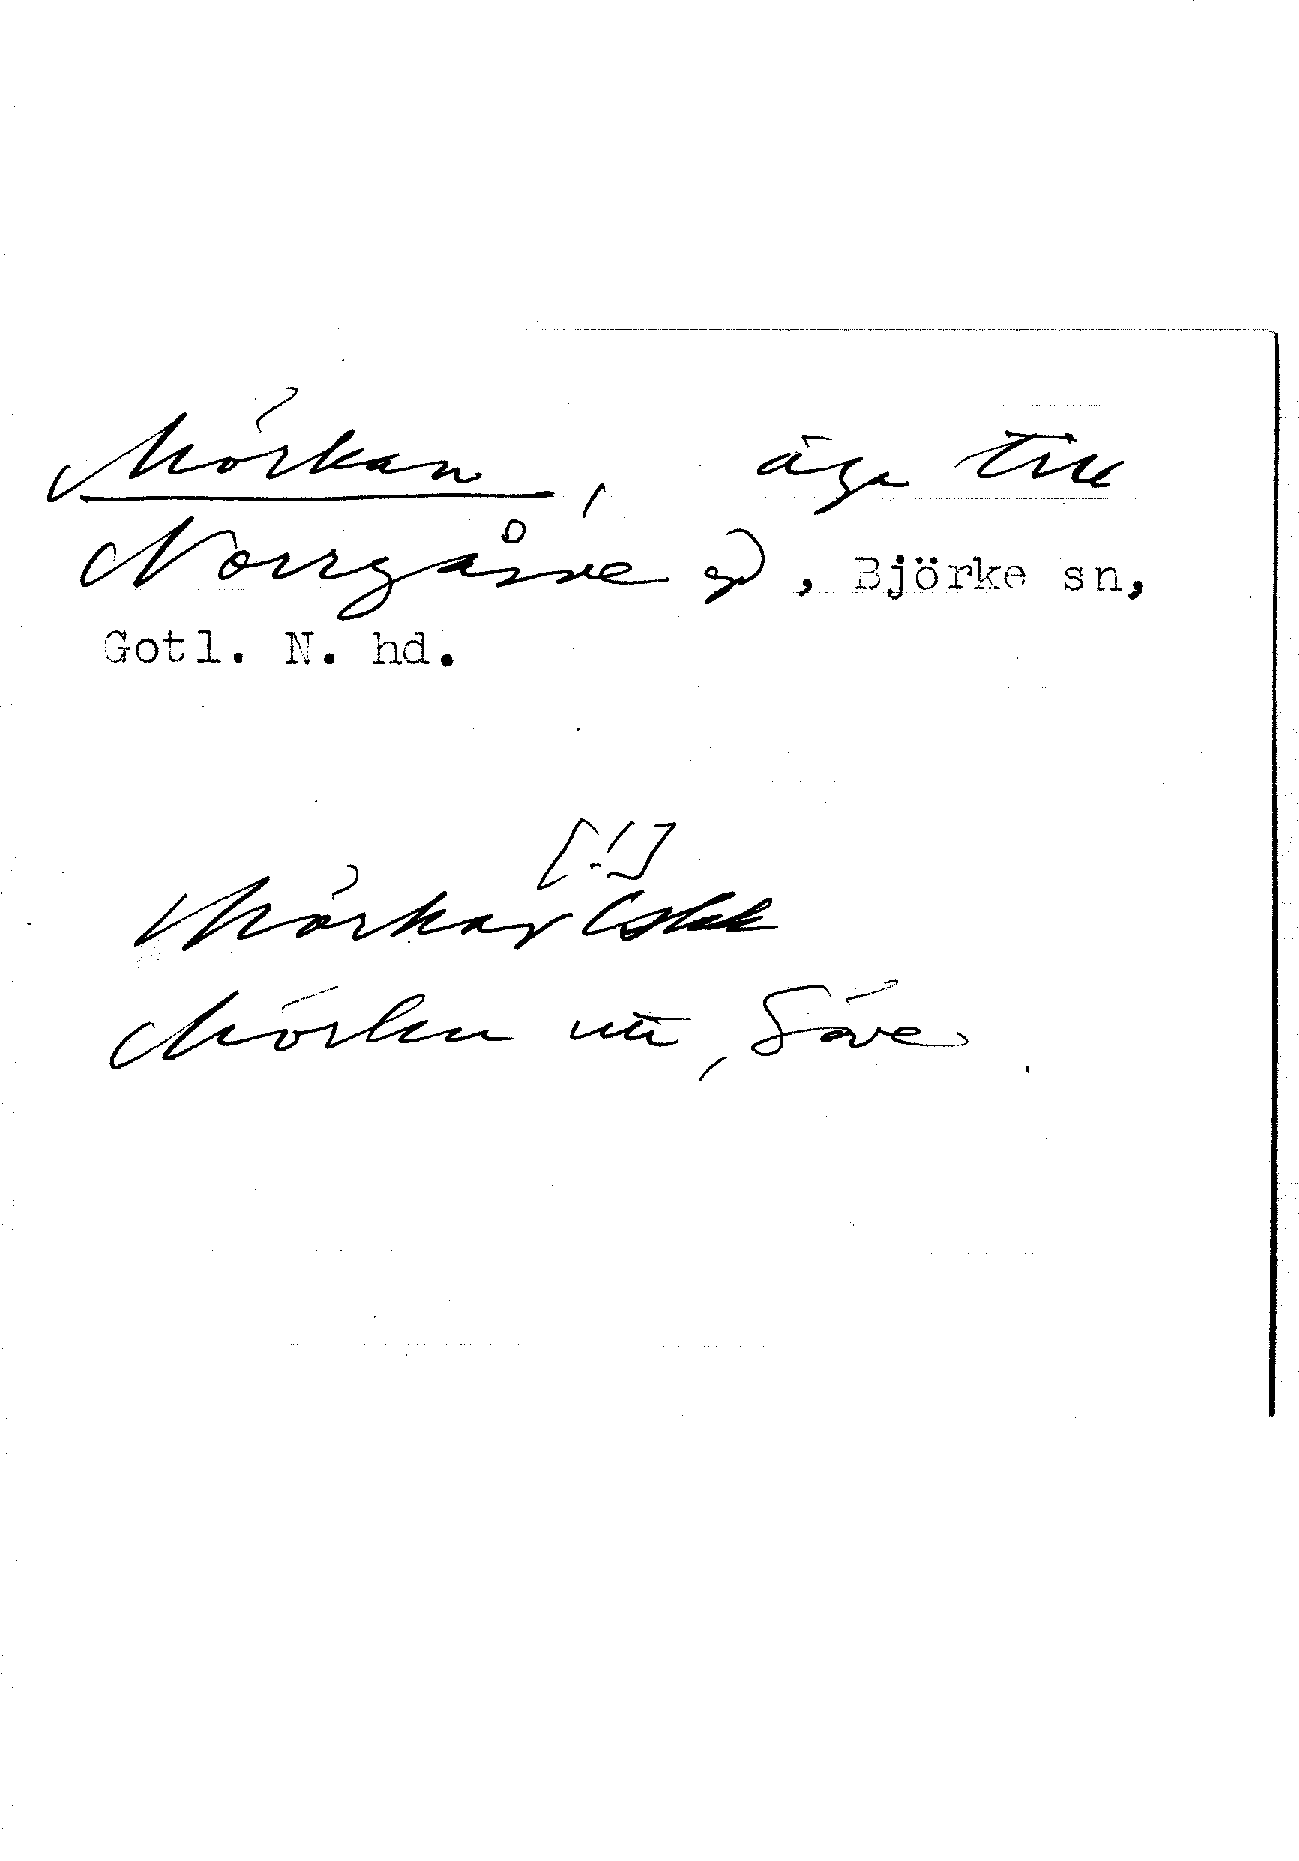 Mörkan, äga till
Norrgårde gd, Björke sn,
Gotl. N. hd.
[!]
Mörkar
Mörku uti, Säve